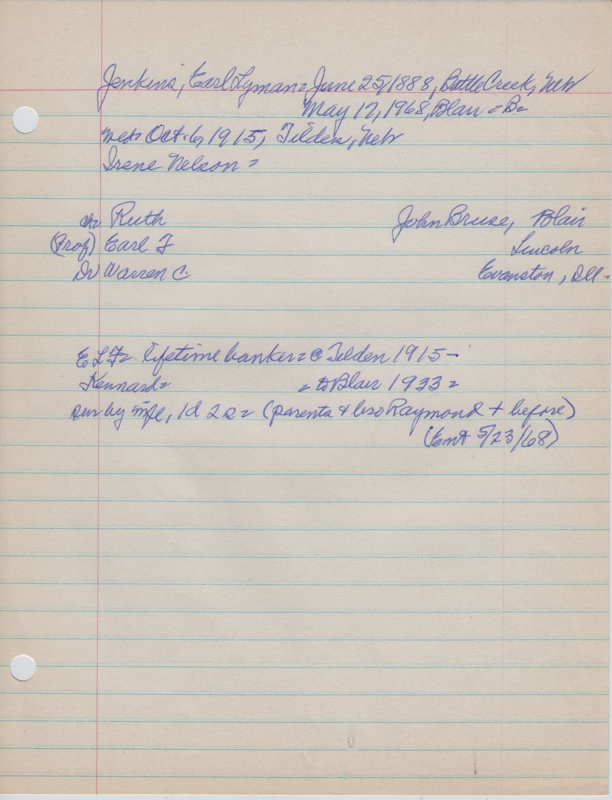 Jenkins, Earl Lyman = June 25, 1888, Battle Creek, Neb
May 17, 1968, Blair = B=
md = Oct. 6, 1915, Tilden, Neb
Irene Nelson =
Ruth John Bruse, Blair
(Prof) Earl F Lincoln
Dr Warren C. Evanston, Ill =
lifetime banker = @ Tilden 1915 -
Kennard = = to Blair 1933 =
sur by wife, 1d 2s = (parents & bro Raymond + before)
(Ent 5/23/68)